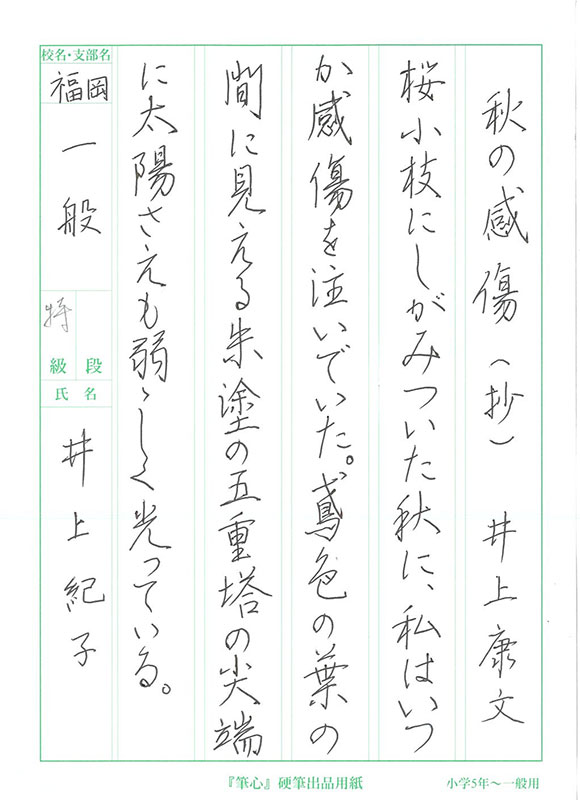 秋の感傷(抄) 井上康文
桜小枝にしがみついた秋に、私はいつ
か感傷を注いでいた。鳶色の葉の
間に見える朱塗の五重塔の尖端
に太陽さえも弱ゝしく光っている。
校名・支部名
福岡
一般
特
級 段
氏名
井上紀子
『筆心』硬筆出品用紙
小学5年〜一般用